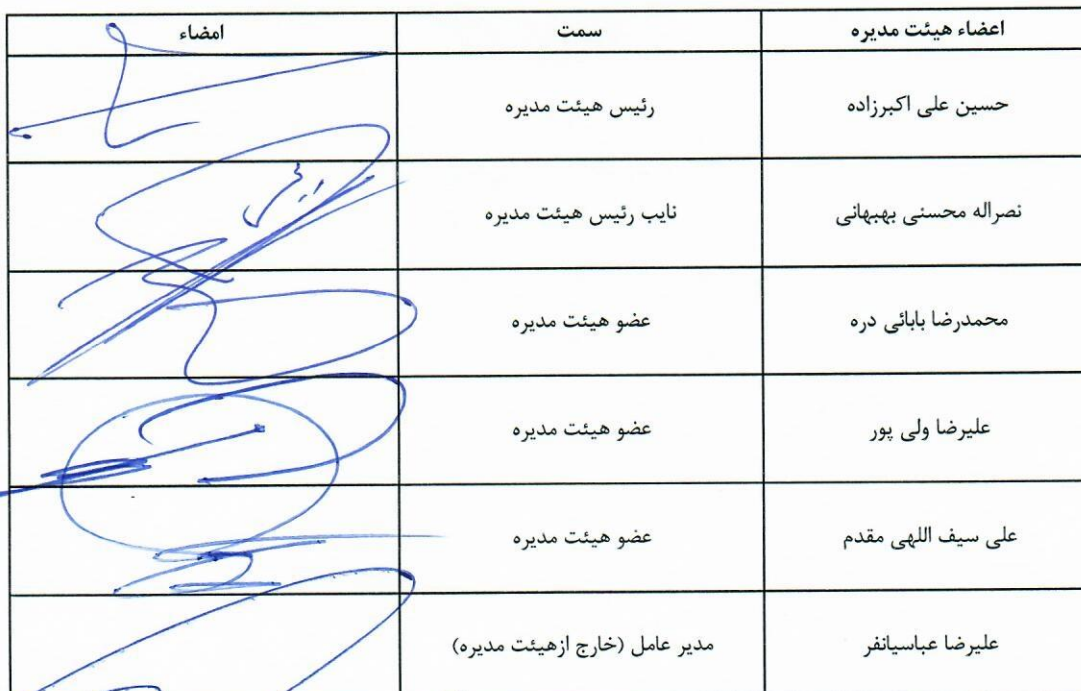 اعضاء هیئت مدیره سمت امضاء
حسین علی اکبرزاده رئیس هیئت مدیره
نصراله محسنی بهبهانی نایب رئیس هیئت مدیره
محمدرضا بابائی دره عضو هیئت مدیره
علیرضا ولی پور عضو هیئت مدیره
علی سیف اللهی مقدم عضو هیئت مدیره
علیرضا عباسیانفر مدیر عامل (خارج ازهیئت مدیره)